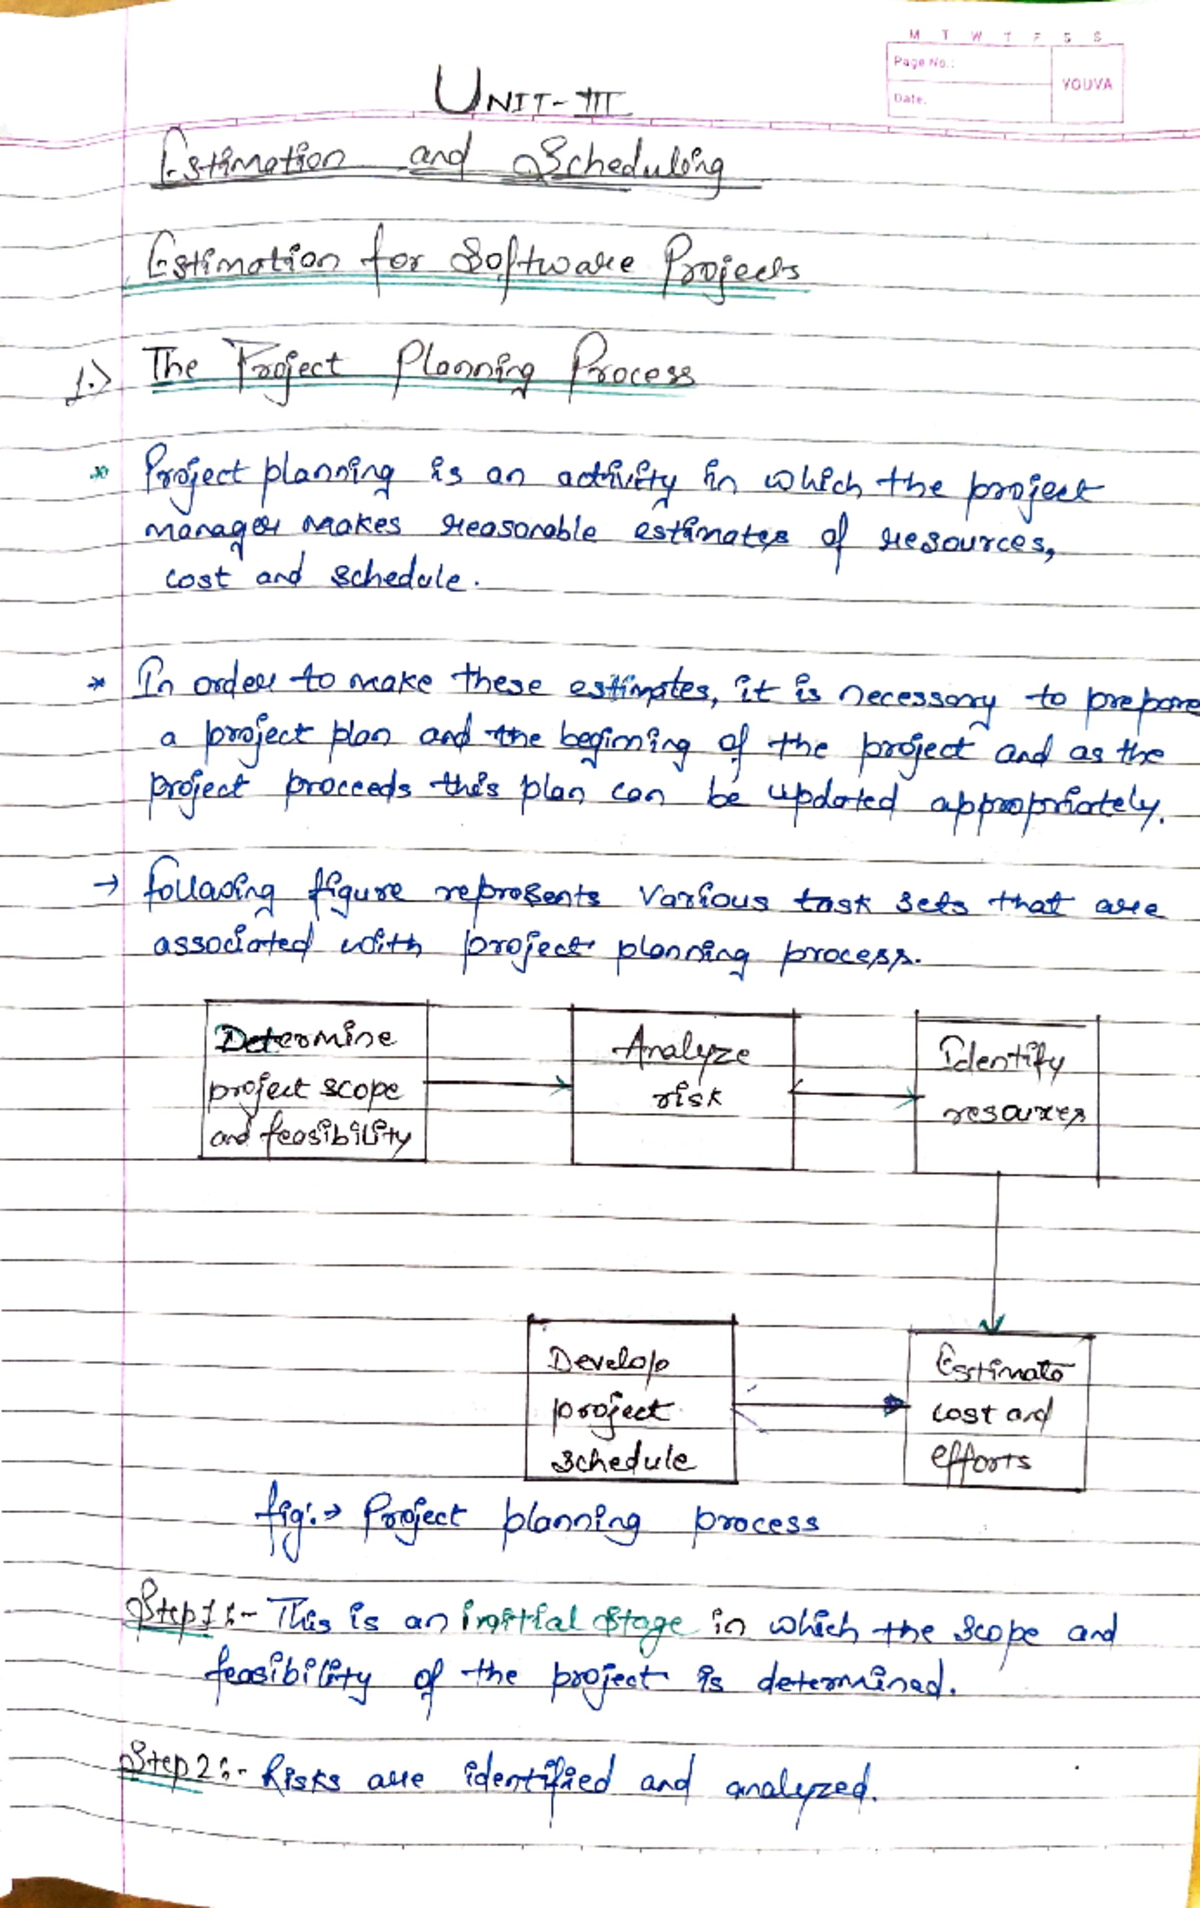 M T W T F S S
Page No.:
Date.
YOUVA
UNIT-III
Estimation and Scheduling
Estimation for Software Projects
1.) The Project Planning Process
* Project planning is an activity in which the project
manager makes reasonable estimates of resources,
cost and schedule.
* In order to make these estimates, it is necessary to prepare
a project plan and the beginning of the project and as the
project proceeds this plan can be updated appropriately.
→ following figure represents various task sets that are
associated with project planning process.
Determine
project scope
and feasibility
Analyze
risk
Identify
resources
Develop
project
schedule
Estimate
cost and
efforts
fig:→ Project planning process
Step 1:- This is an initial stage in which the scope and
feasibility of the project is determined.
Step 2:- Risks are identified and analyzed.